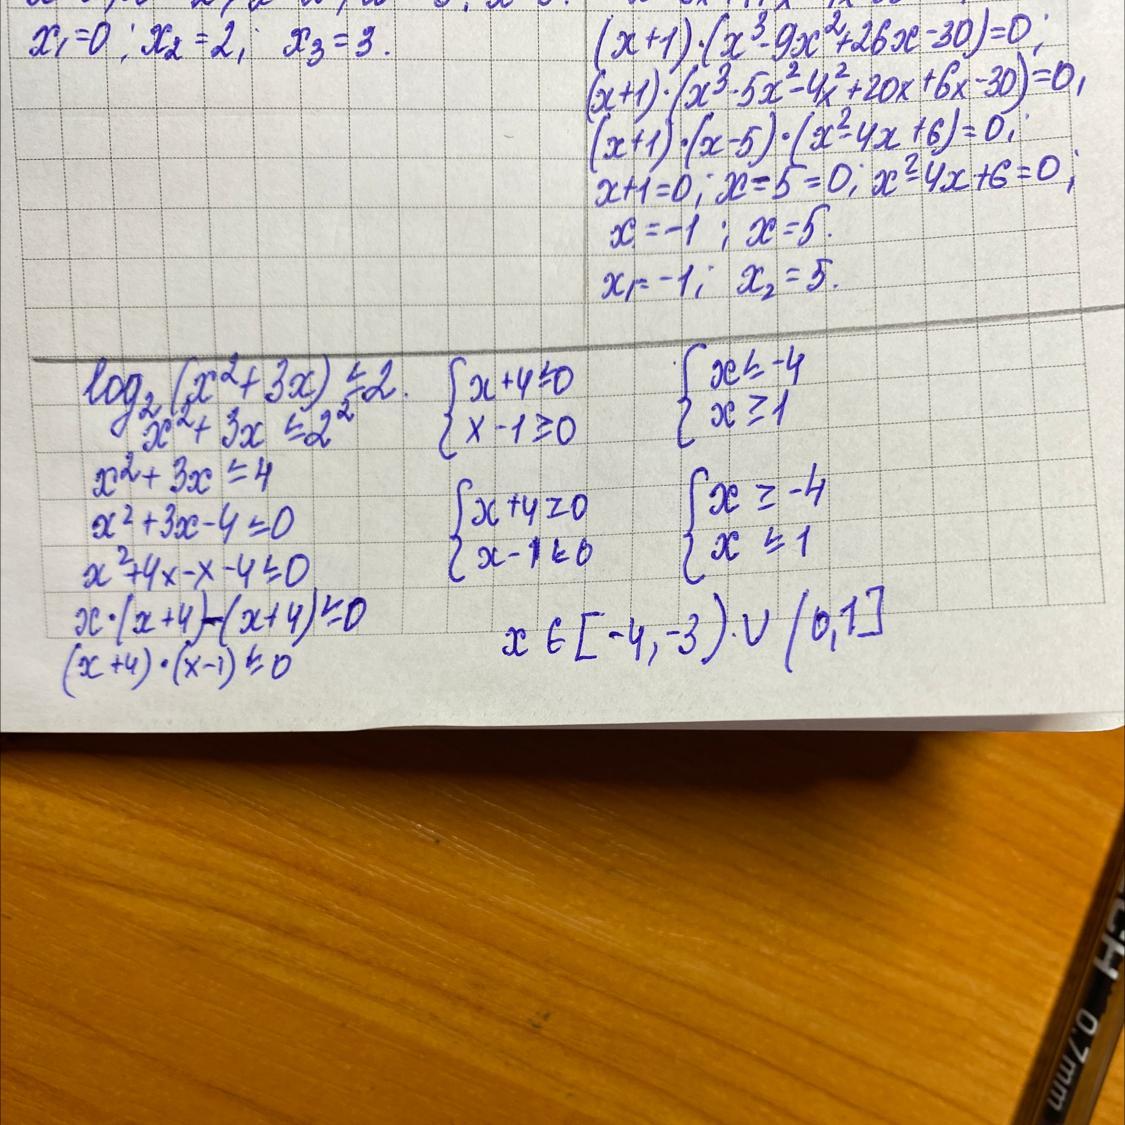 x₁=0; x₂=2; x₃=3.
(x+1)·(x³-9x²+26x-30)=0;
(x+1)·(x³-5x²-4x²+20x+6x-30)=0;
(x+1)·(x-5)·(x²-4x+6)=0;
x+1=0; x-5=0; x²-4x+6=0;
x=-1; x=5.
x₁=-1; x₂=5.
log₂(x²+3x)≤2.
x²+3x≤2²
x²+3x≤4
x²+3x-4≤0
x²+4x-x-4≤0
x·(x+4)-(x+4)≤0
(x+4)·(x-1)≤0
{x+4≤0
x-1≥0
{x≤-4
x≥1
{x+4≥0
x-1≤0
{x≥-4
x≤1
x∈[-4,-3)∪(0,1]
0.7mm